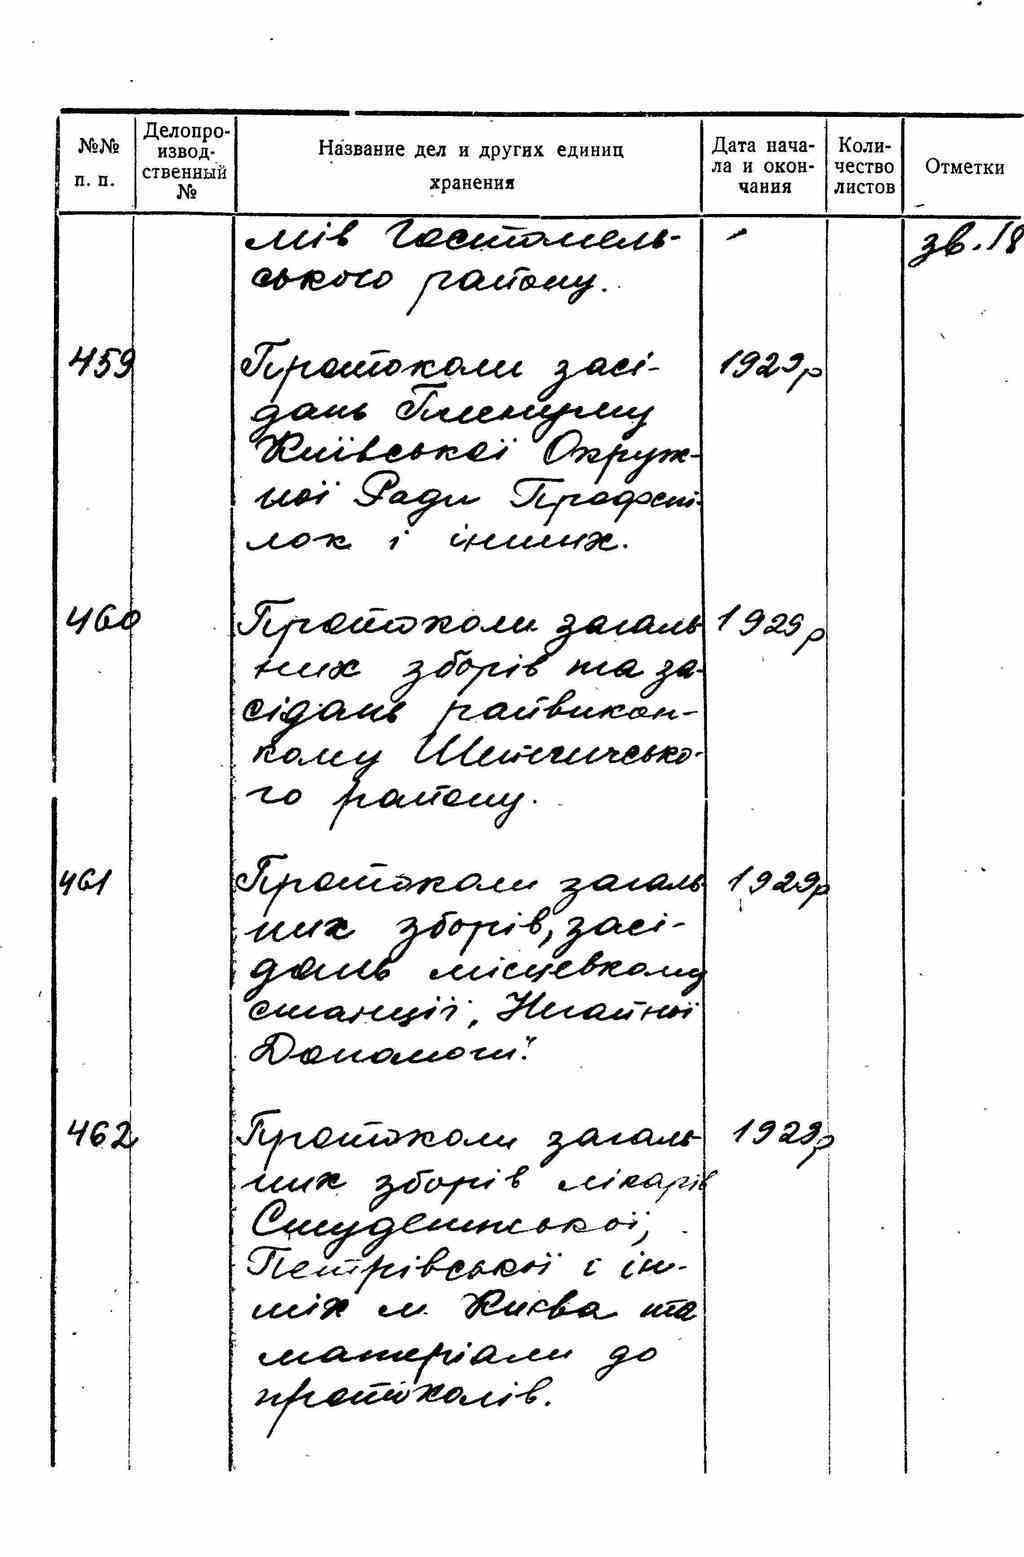 №№ п. п.
Делопро-
извод-
ственный
№
Название дел и других единиц
хранения
Дата нача-
ла и окон-
чания
Коли-
чество
листов
Отметки
мів Гостомель-
ського району.
зв. 18
459
Протоколи засі-
дань Пленуму
Київської Окруж-
ної Ради Профспі-
лок і інших.
1929р
460
Протоколи загаль
них зборів та за-
сідань райвикон-
кому
го району.
1929р
461
Протоколи загаль
них зборів, засі-
дань місцевкому
станції, Негайної
Допомоги".
1929р
462
Протоколи загаль
них зборів лікарів
Студентської,
Петрівської і ін-
ших м. Києва та
матеріали до
протоколів.
1929р